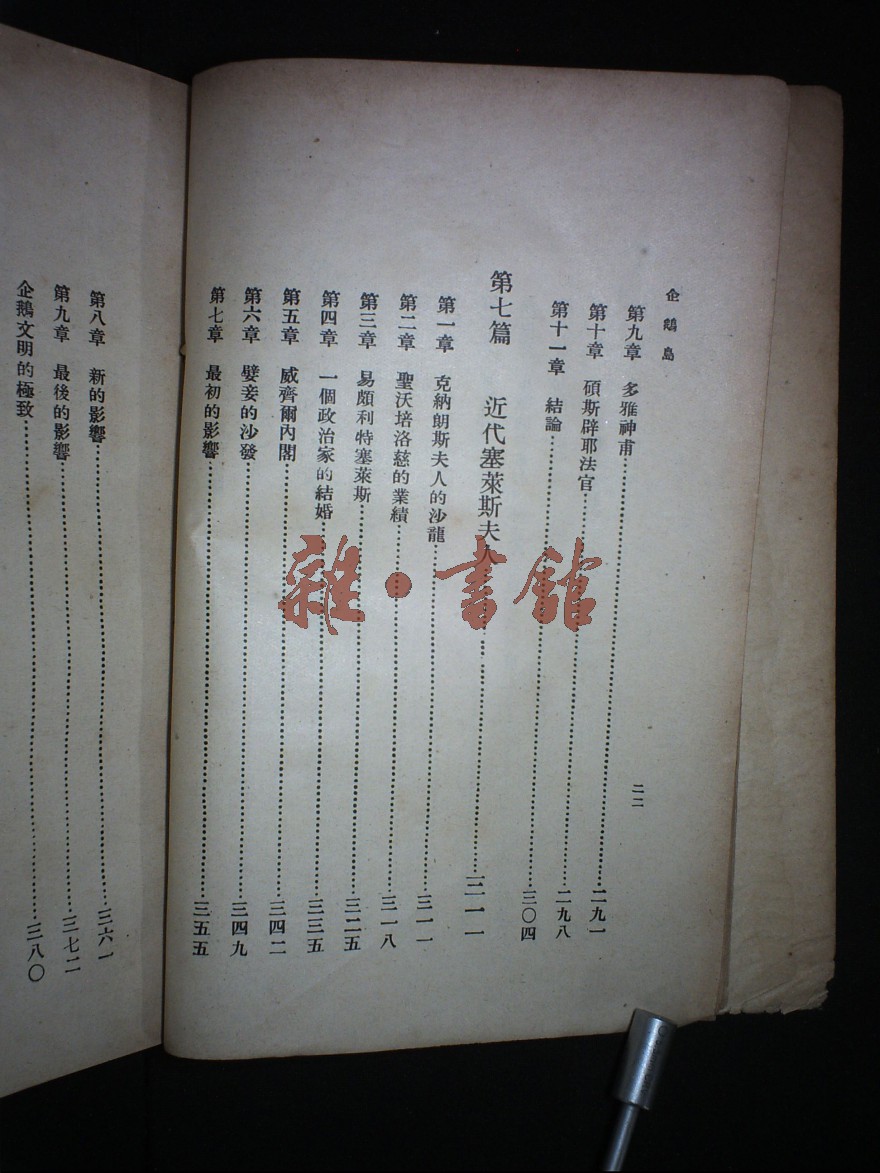 企鵝島
二二
第九章 多雅神甫……二九一
第十章 碩斯辟耶法官……二九八
第十一章 結論……三〇四
第七篇 近代塞萊斯夫人……三一一
第一章 克納朗斯夫人的沙龍……三一一
第二章 聖沃培洛慈的業績……三一八
第三章 易頗利特塞萊斯……三二五
第四章 一個政治家的結婚……三三五
第五章 威齊爾內閣……三四二
第六章 嬖妾的沙發……三四九
第七章 最初的影響……三五五
第八章 新的影響……三六一
第九章 最後的影響……三七二
企鵝文明的極致……三八〇
雜·書館